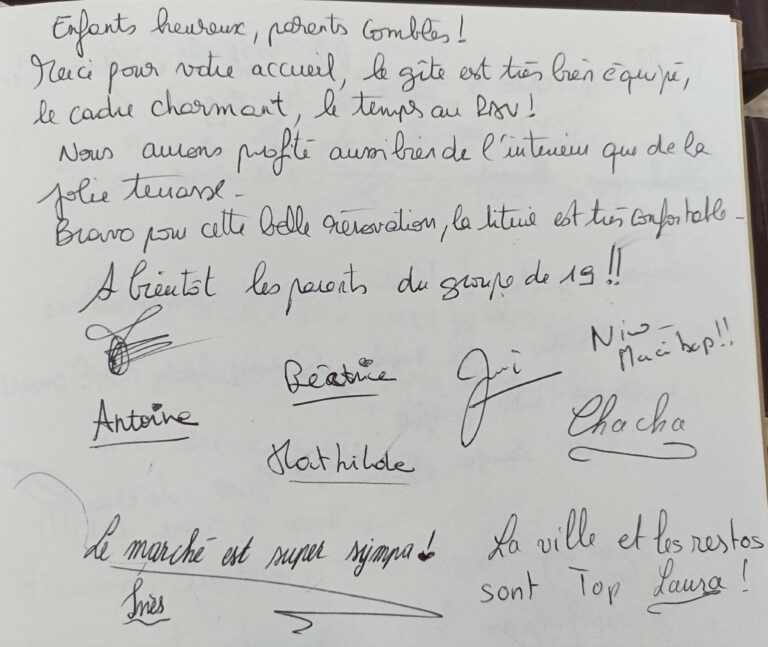 Enfants heureux, parents comblés !
Merci pour votre accueil, le gîte est très bien équipé,
le cadre charmant, le temps au RDV !
Nous aurons profité aussi bien de l'intérieur que de la
jolie terrasse -
Bravo pour cette belle rénovation, la literie est très confortable -
A bientôt les parents du groupe de 19 !!
Antoine
Béatrice
Mathilde
Nino -
Merci bcp !!
Chacha
Le marché est super sympa !
Inès
La ville et les restos
sont Top Laura !